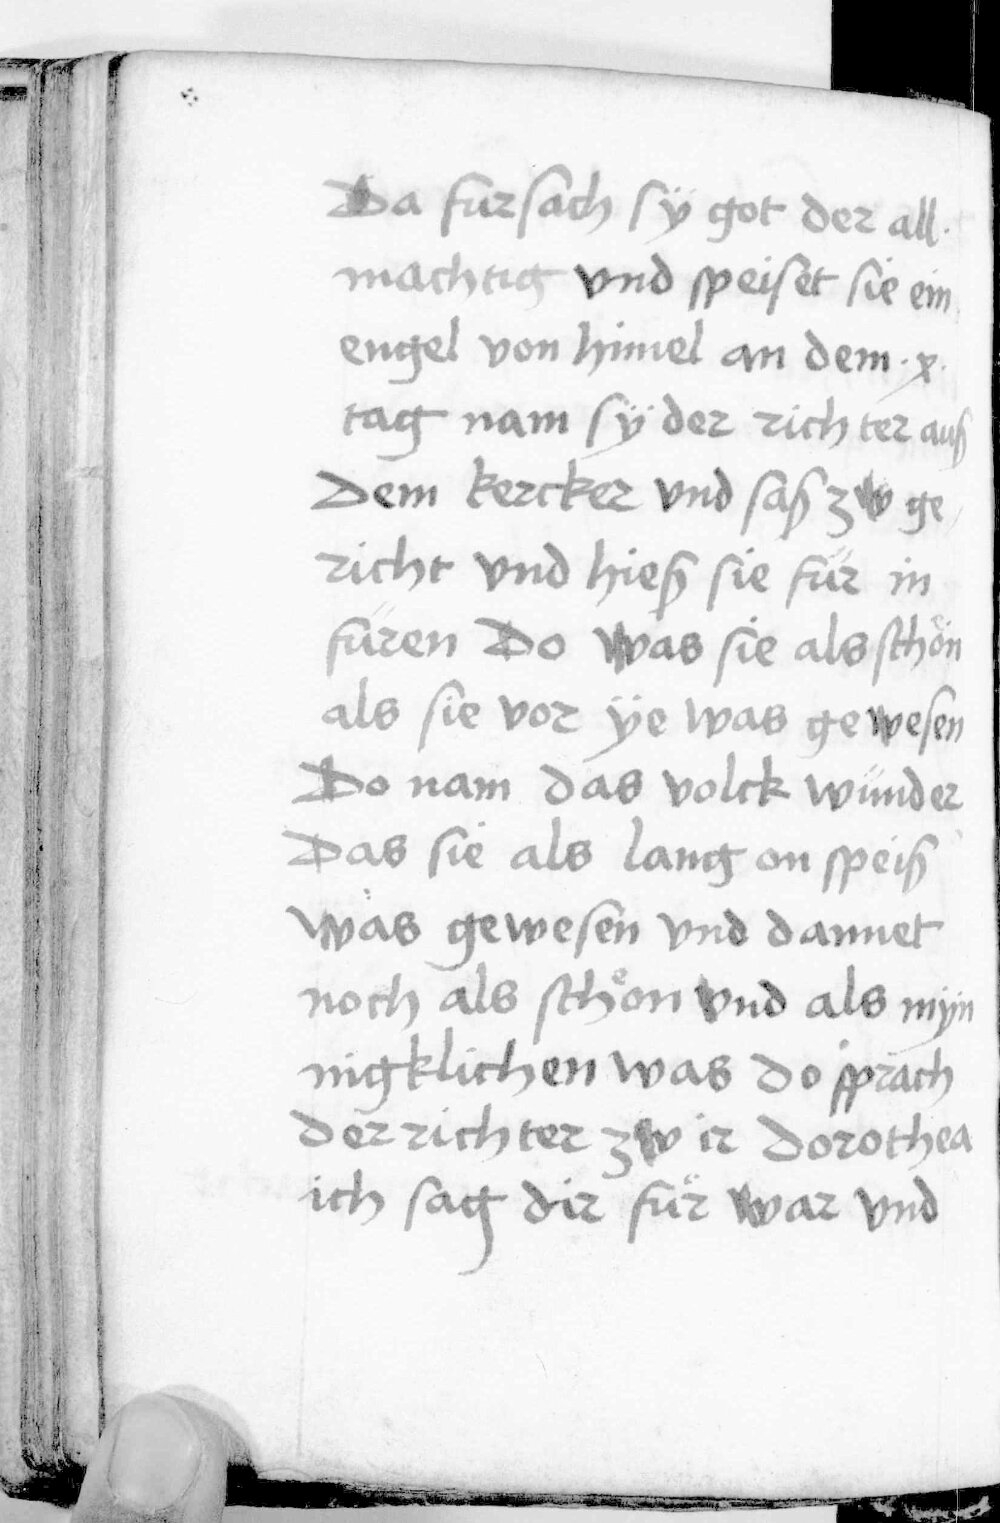 Da fursach sÿ got der all·
machtig vnd speiset sie ein
engel von himel an dem ·x·
tag nam sÿ der richter auß
Dem kercker vnd saß zw ge
richt vnd hieß sie für in
füren Do was sie als schön
als sie vor ÿe was gewesen
Do nam das volck wunder
Das sie als lang on speiß
was gewesen vnd dannet
noch als schon vnd als mÿn
nigklichen was do sprach
der richter zw ir Dorothea
ich sag dir für war vnd